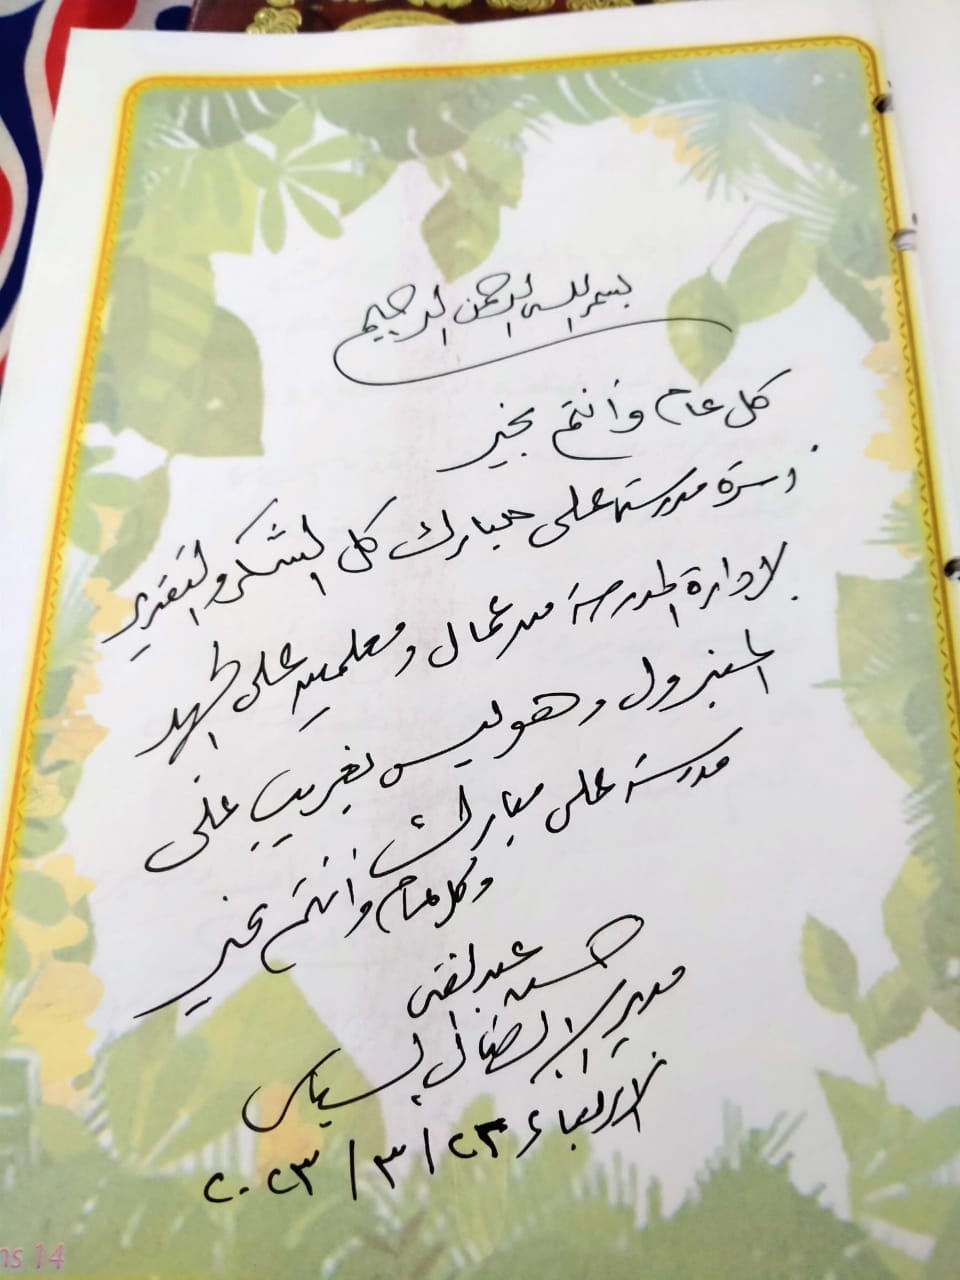 بسم الله الرحمن الرحيم
كل عام وأنتم بخير
أسرة مدرسة على مبارك كل الشكر والتقدير
لإدارة المدرسة من عمال ومعلمين على الجهد
المبذول وهو ليس بغريب على
مدرسة على مبارك
وكل عام وأنتم بخير
حسن عبد الغنى
مدير
الأربعاء ٢٣ / ٣ / ٢٠٢٣
ns 14